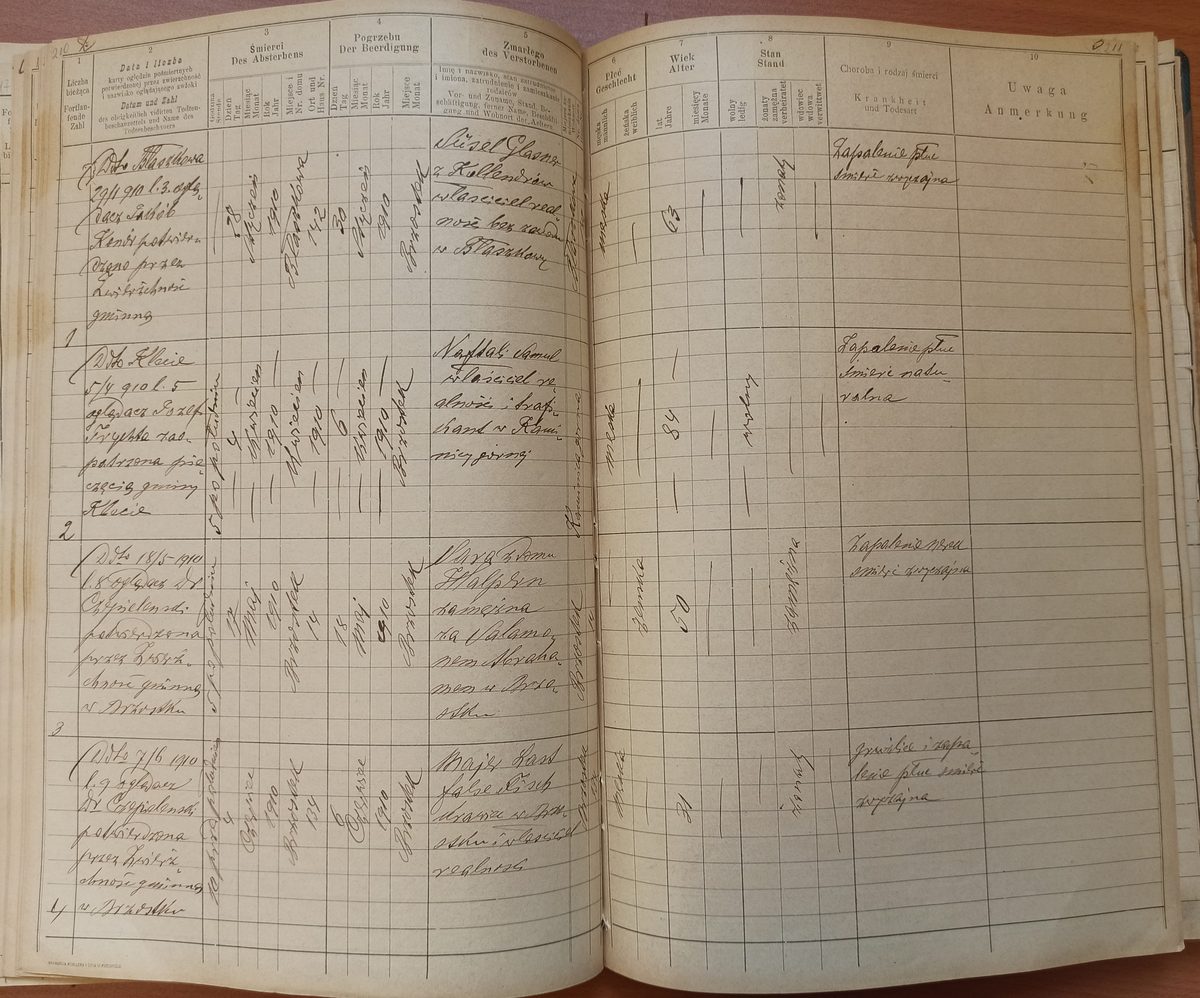 210
1
Liczba
bieżąca
Fortlau-
fende
Zahl
2
Data i liczba
karty oględzin pośmiertnych
potwierdzonej przez zwierzchność
i nazwisko oglądającego zwłoki
Datum und Zahl
3
Śmierci
Des Absterbens
Godzina
Stunde
Dzień
Tag
Miesiąc
Monat
Rok
Jahr
Miejsce i
Nr. domu
Ort und
Haus Nr.
4
Pogrzebu
Der Beerdigung
Dzień
Tag
Miesiąc
Monat
Rok
Jahr
Miejsce
Ort
5
Zmarłego
des Verstorbenen
Imię i nazwisko, stan zatrudnienie
i imiona, zatrudnienie i zamieszkanie
rodziców
Vor- und Zuname, Stand, Be-
schäftigung, ferner Name, Beschäfti-
gung und Wohnort der Aeltern
6
Płeć
Geschlecht
męska
männlich
żeńska
weiblich
7
Wiek
Alter
lat
Jahre
miesięcy
Monate
8
Stan
Stand
wolny
ledig
żonaty
zamężna
verheiratet
wdowiec
wdowa
verwittwet
9
Choroba i rodzaj śmierci
Krankheit
und Todesart
10
Uwaga
Anmerkung
211
1
Ddto Błaszkowa
29/1 910 l. 3. oglą
dacz Jakób
potwier-
dzono przez
Zwierzchność
gminną
28
Styczeń
1910
Błaszkowa
142
30
Styczeń
1910
Brzostek
Süsel Glasner
z Kollendrów
właściciel real
ność
w Błaszkowy
męska
63
żonaty
Zapalenie płuc
śmierć zwyczajna
2
Ddto Klecie
5/4 910 l. 5
oglądacz Józef
Trychta zao-
patrzona pie-
częcią gminy
Klecie
5 po południu
4
Kwiecień
1910
Kwiecień
1910
6
Kwiecień
1910
Brzostek
Naftali Samul
właściciel re-
alności i trafi-
kant w Kami-
nicy górnej
Kamienica górna
męska
84
wolny
Zapalenie płuc
śmierć natu-
ralna
3
Ddto 18/5 1910
l. 8 oglądacz dr
potwierdzona
przez Zwierz-
chność gminną
w Brzostku
5 po południu
17
Maj
1910
Brzostek
14
18
Maj
1910
Brzostek
Sara z domu
Halpern
zamężna
za Salamo-
nem Abraha-
mem w Brzo-
stku
Brzostek
żeńska
50
zamężna
Zapalenie nerek
śmierć zwyczajna
4
Ddto 7/6 1910
l. 9 oglądacz
Dr
potwierdzona
przez Zwierz
chność gminną
w Brzostku
10 przed południem
4
Czerwiec
1910
Brzostek
134
6
Czerwiec
1910
Brzostek
Majer Last
false Fisch
w Brzo-
stku i właściciel
realności
męska
31
żonaty
gruźlica i zapa-
lenie płuc śmierć
zwyczajna